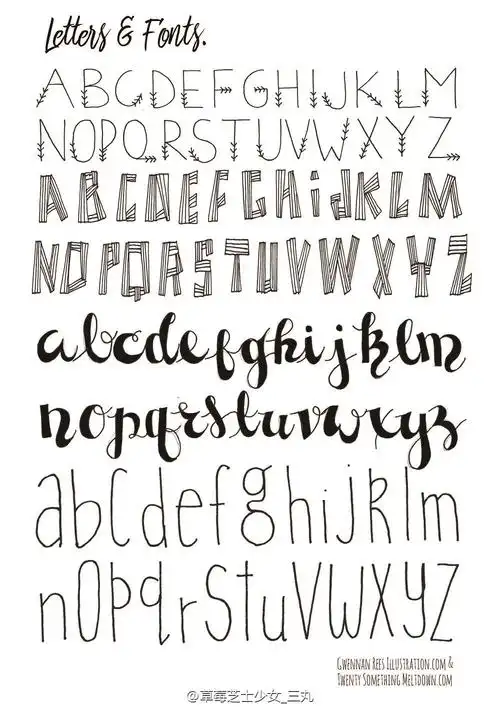 Letters & Fonts.
ABCDEFGHIJKLM
NOPQRSTUVWXYZ
ABCDEFGHiJKLM
NOPQRSTUVWXYZ
abcdefghijklm
nopqrstuvwxyz
abcdefghijklm
nopqrstuvwxyz
Gwennan Rees Illustration.com &
Twenty Something Meltdown.com
@草莓芝士少女_三丸